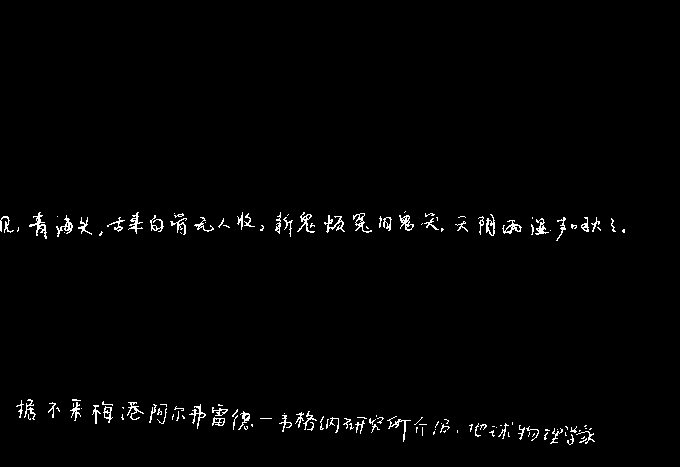 见,青海头,古来白骨无人收。新鬼烦冤旧鬼哭,天阴雨湿声啾之。
据不来梅港阿尔弗雷德—韦格纳研究所介绍,地球物理学家